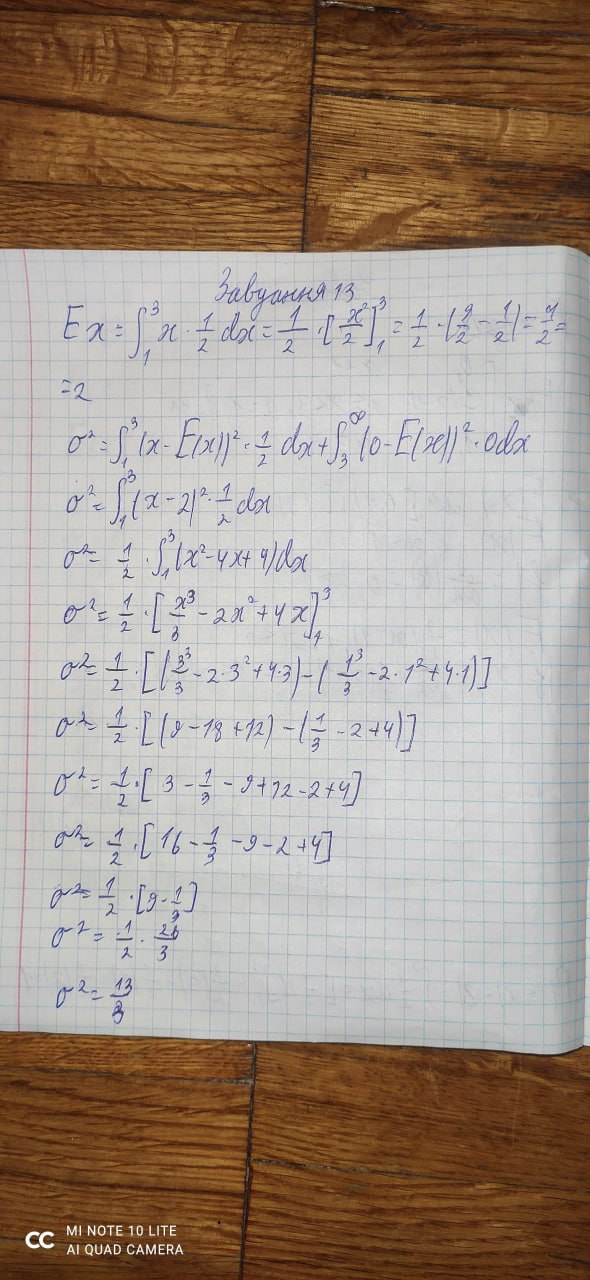 Завдання 13
Ex = ∫₁³ x · 1/2 dx = 1/2 · [x²/2]₁³ = 1/2 · (9/2 - 1/2) = 4/2 =
= 2
σ² = ∫₁³ (x - E(x))² · 1/2 dx + ∫₃^∞ (0 - E(x))² · 0dx
σ² = ∫₁³ (x - 2)² · 1/2 dx
σ² = 1/2 · ∫₁³ (x² - 4x + 4)dx
σ² = 1/2 · [x³/3 - 2x² + 4x]₁³
σ² = 1/2 · [(3³/3 - 2·3² + 4·3) - (1³/3 - 2·1² + 4·1)]
σ² = 1/2 · [(9 - 18 + 12) - (1/3 - 2 + 4)]
σ² = 1/2 · [3 - 1/3 - 9 + 12 - 2 + 4]
σ² = 1/2 · [16 - 1/3 - 9 - 2 + 4]
σ² = 1/2 · [9 - 1/3]
σ² = 1/2 · 26/3
σ² = 13/3
MI NOTE 10 LITE
AI QUAD CAMERA